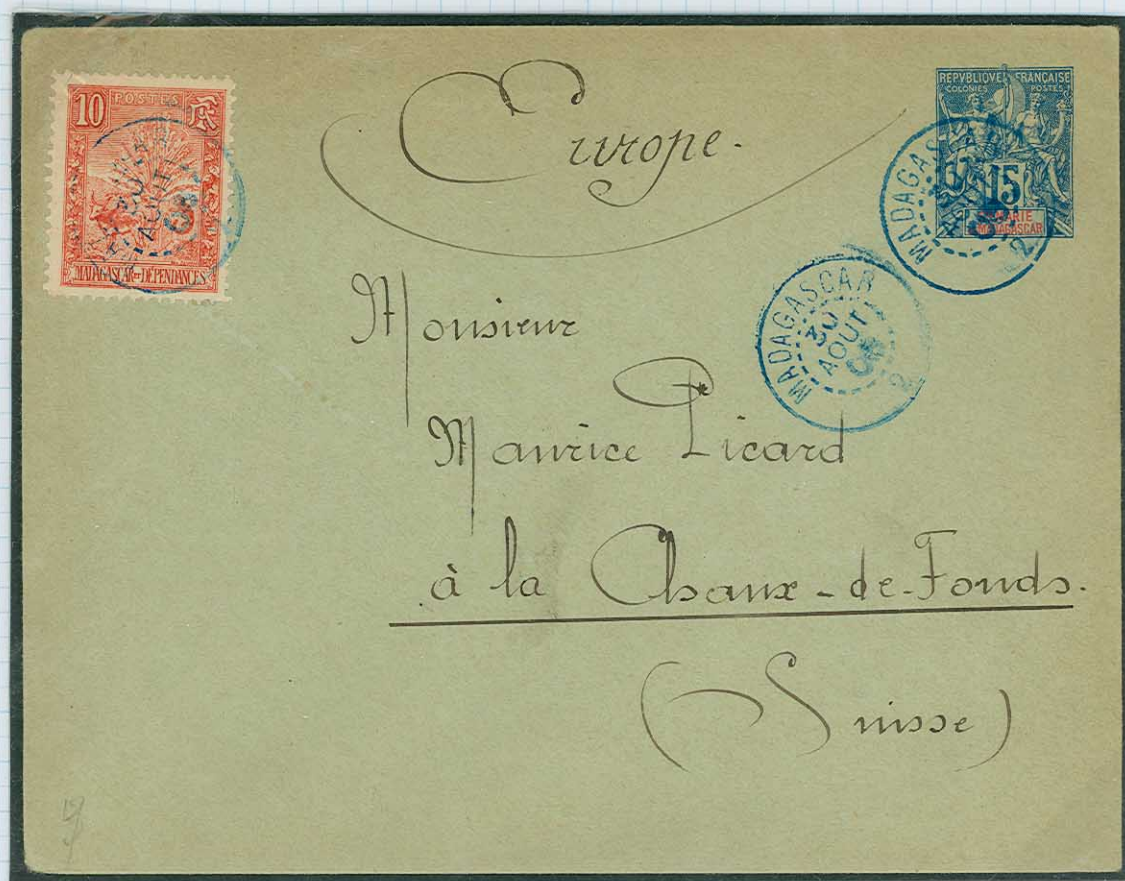 10 POSTES RF
MADAGASCAR ET DÉPENDANCES
AOUT
Europe.
REPVBLIQVE FRANÇAISE
COLONIES POSTES
15
STE MARIE
DE MADAGASCAR
MADAGASCAR
2
MADAGASCAR
30
AOUT
2
Monsieur
Maurice Picard
à la Chaux-de-Fonds.
(Suisse)